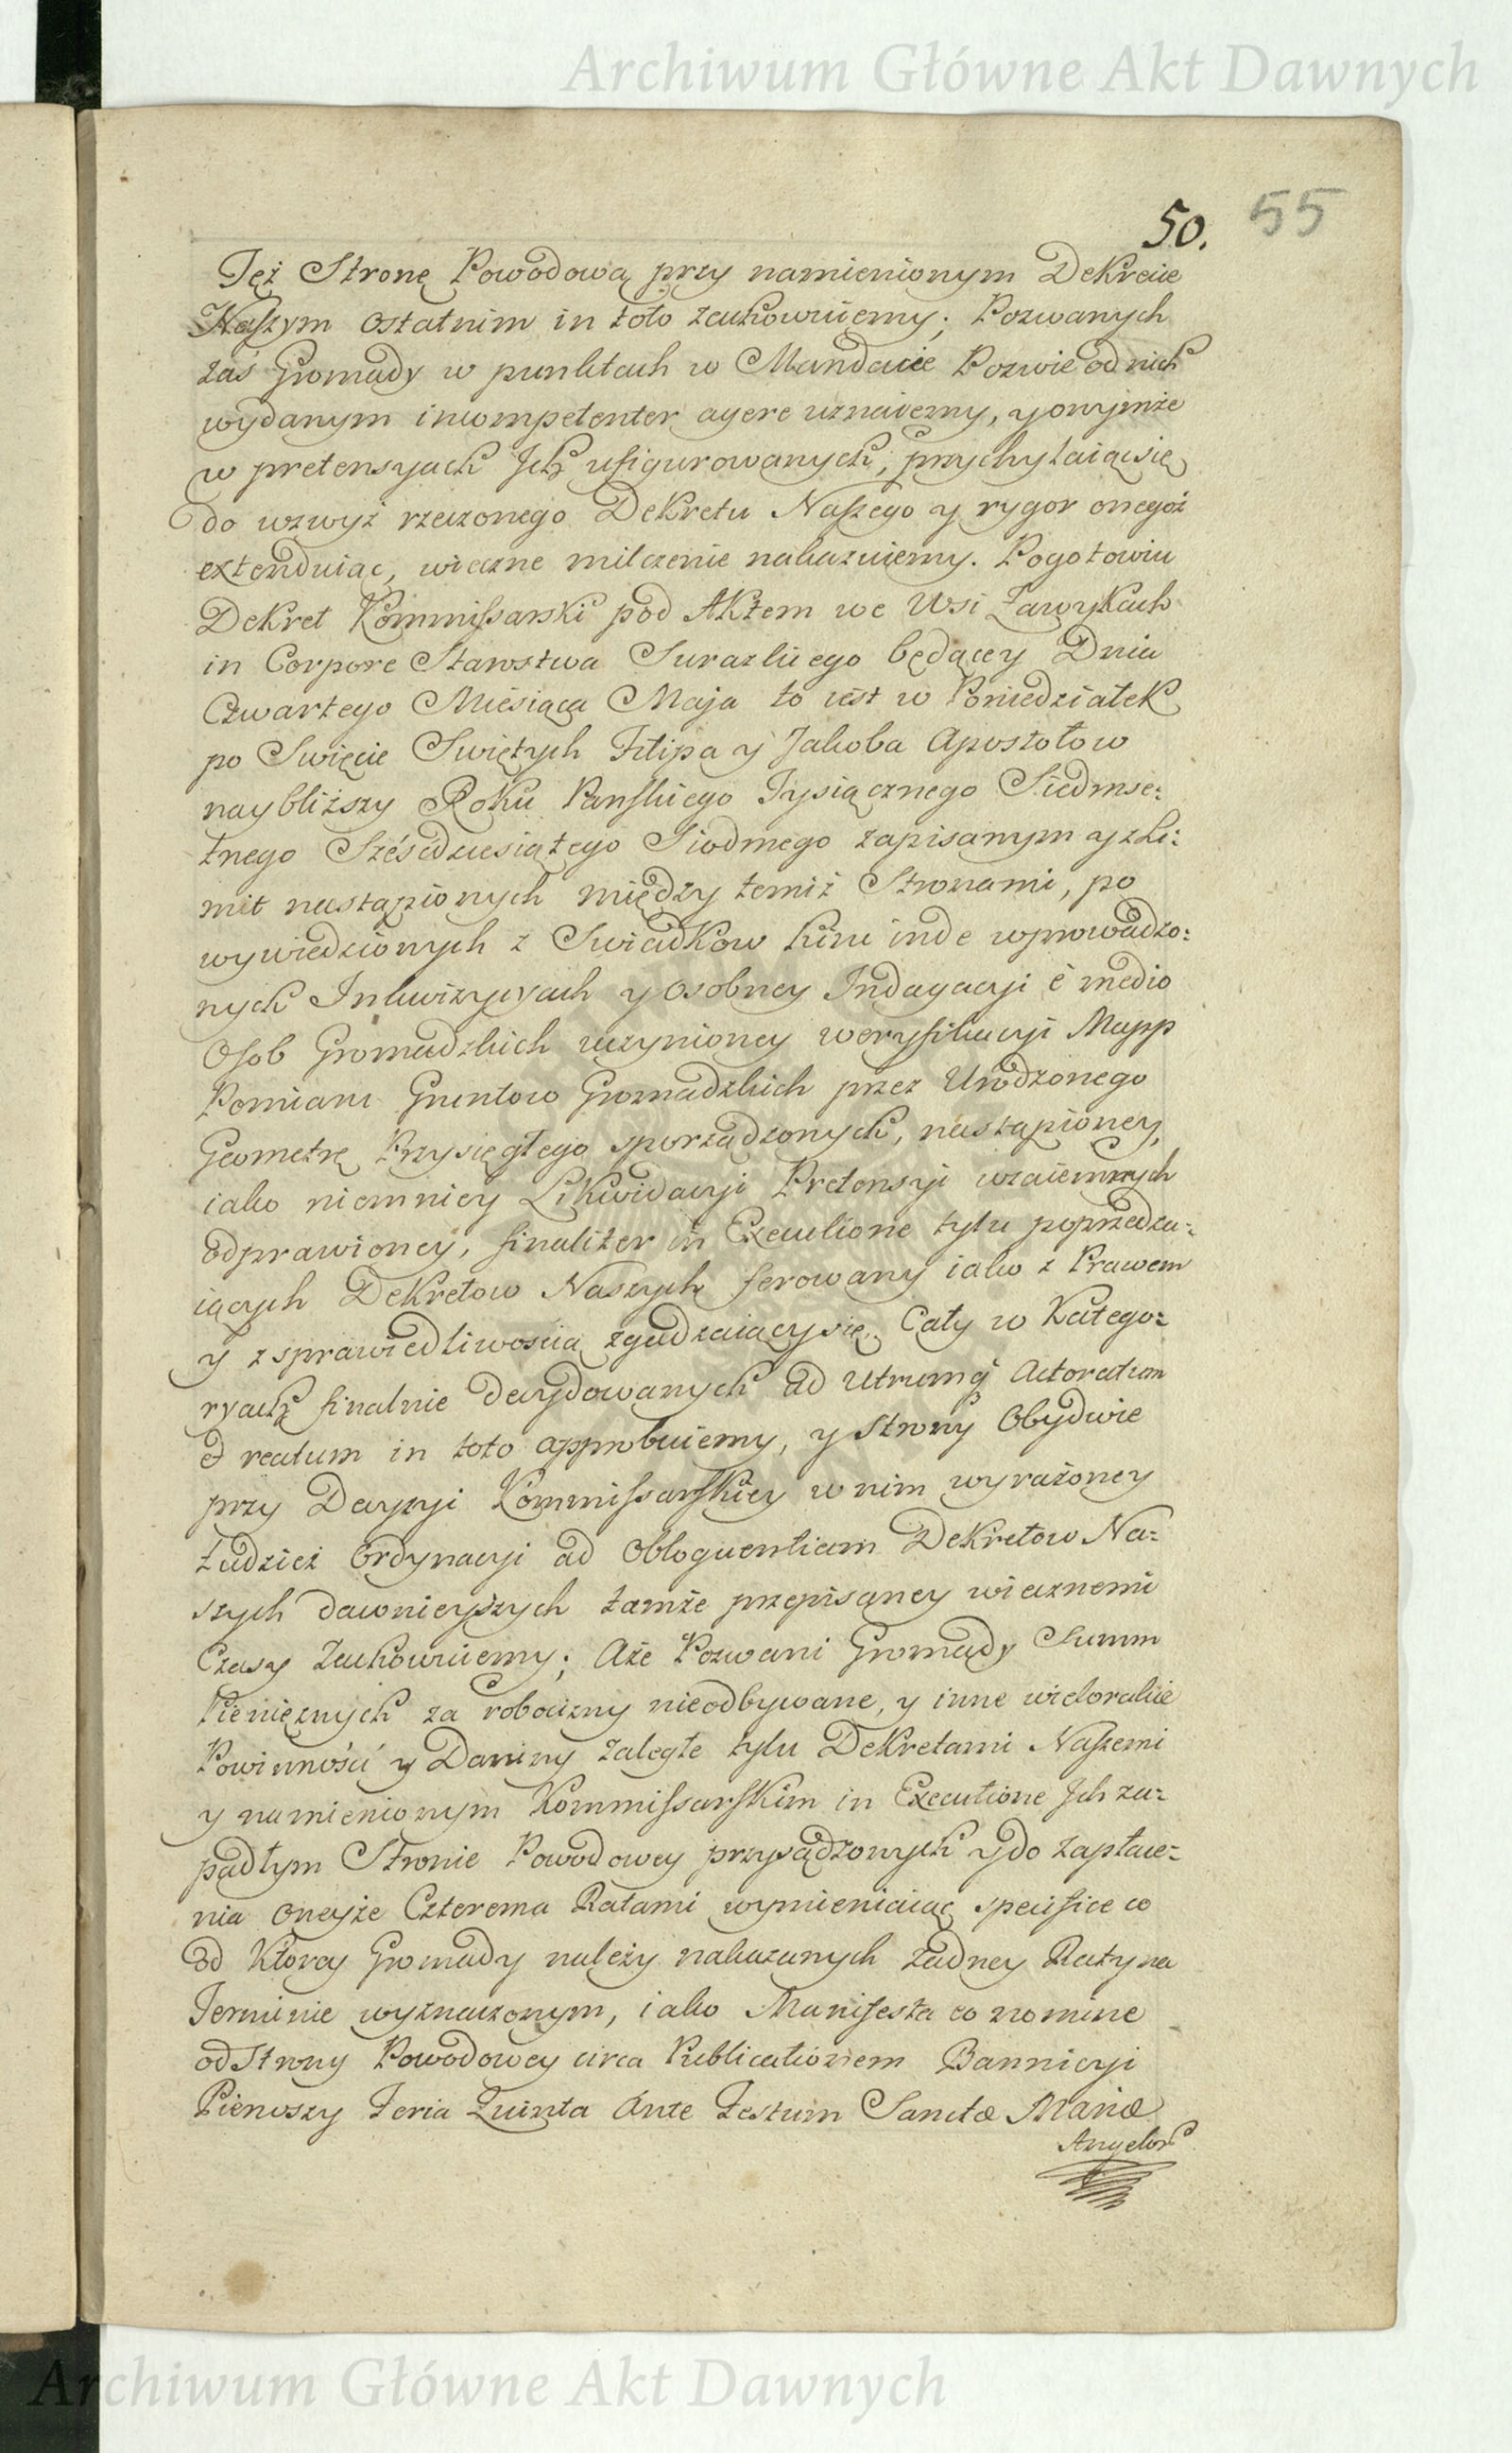 Archiwum Główne Akt Dawnych
50. 55
Teź Stronę Powodową przy namienionym Dekrecie
Naszym ostatnim in toto zachowuiemy; Pozwanych
zaś Gromady w punktach w Mandacie Pozwie od nich
wydanym incompetenter agere uznaiemy, y onymże
w pretensyach Ich ufigurowanych, przychylaiąc się
do wzwyż rzeczonego Dekretu Naszego y rygor onegoż
extenduiąc, wieczne milczenie nakazuiemy. Pogotowiu
Dekret Kommissarski pod Aktem we Wsi Zawykach
in Corpore Starostwa Surazkiego będącey Dnia
Czwartego Miesiąca Maja to iest w Poniedziałek
po Swięcie Swiętych Filipa y Jakoba Apostołow
naybliższy Roku Pańskiego Tysiącznego Siedmse:
tnego Sześćdziesiątego Siodmego zapisanym y z Li:
mit nastąpionych między temiż Stronami, po
wywiedzionych z Swiadkow hinc inde wprowadzo:
nych Inkwizycyach y osobney Indagacyi è medio
Osob Gromadzkich uczynioney weryfikacyi Mapp
Pomiaru Gruntow Gromadzkich przez Urodzonego
Geometrę Przysięgłego sporządzonych, nastąpioney,
iako niemniey Likwidacyi Pretensyi wzaiemnych
odprawioney, finaliter in Executione tylu poprzedza:
iących Dekretow Naszych ferowany iako z Prawem
y z sprawiedliwością zgadzaiący się. Cały w Katego:
ryach finalnie decydowanych ad utrumq̃ Actoratum
& reatum in toto approbuiemy, y Strony Obydwie
przy Decyzyi Kommissarskiey w nim wyrażoney
tudzież Ordynacyi ad obloquentiam Dekretow Na:
szych dawnieyszych tamże przepisaney wiecznemi
Czasy Zachowuiemy; Aże Pozwani Gromady Summ
Pieniężnych za robocizny nieodbywane, y inne wielorakie
Powinności y Daniny zaległe tylu Dekretami Naszemi
y namienionym Kommissarskim in Executione Ich za:
padłym Stronie Powodowey przysądzonych y do zapłace:
nia oneyże Czterema Ratami wymieniaiąc specifice co
od Ktorey Gromady należy nakazanych żadney Raty na
Terminie wyznaczonym, iako Manifesta eo nomine
od Strony Powodowey circa Publicationem Bannicyi
Pierwszy Feria Quinta Ante Festum Sanctæ Mariæ
Angelor
Archiwum Główne Akt Dawnych